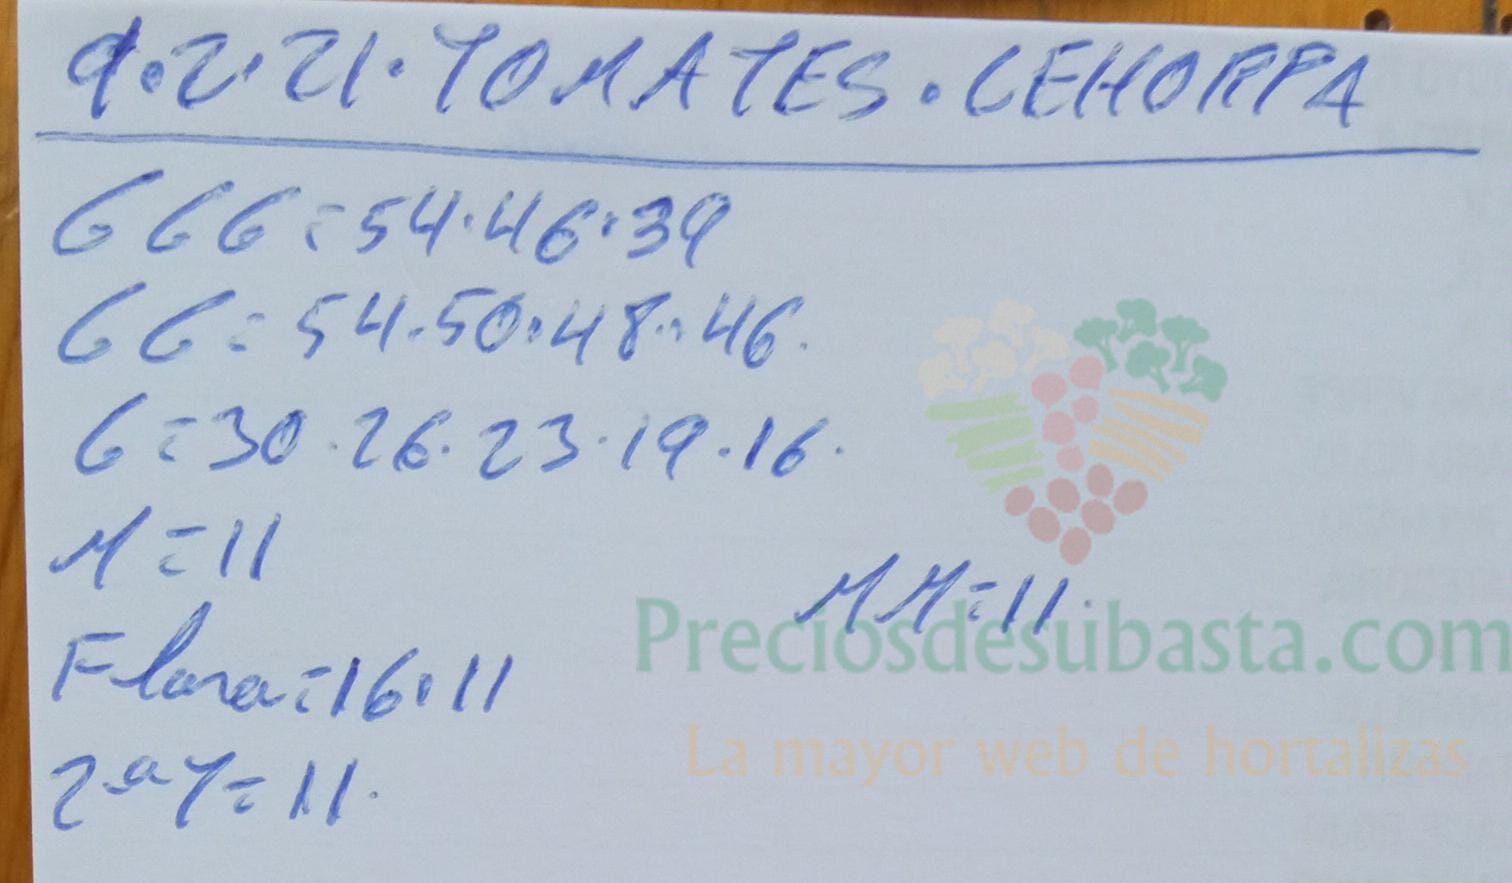 9.2.21.TOMATES.CEHORPA
GGG=54.46.39
GG=54.50.48.46.
G=30.26.23.19.16.
M=11
MM=11.
Flora=16.11
2ªT=11.
Preciosdesubasta.com
La mayor web de hortalizas